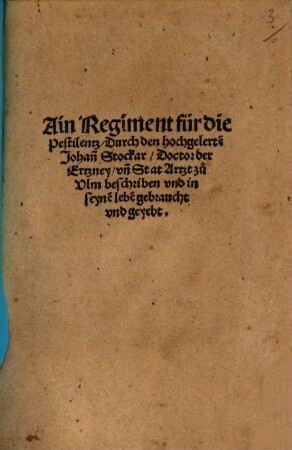 3
Ain Regiment für die
Pestilentz/Durch den hochgelertē
Johañ Stockar/Doctor der
Ertzney/vñ Stat Artzt zů
Vlm beschriben vnd in
seynē lebē gebraucht
vnd geyebt.